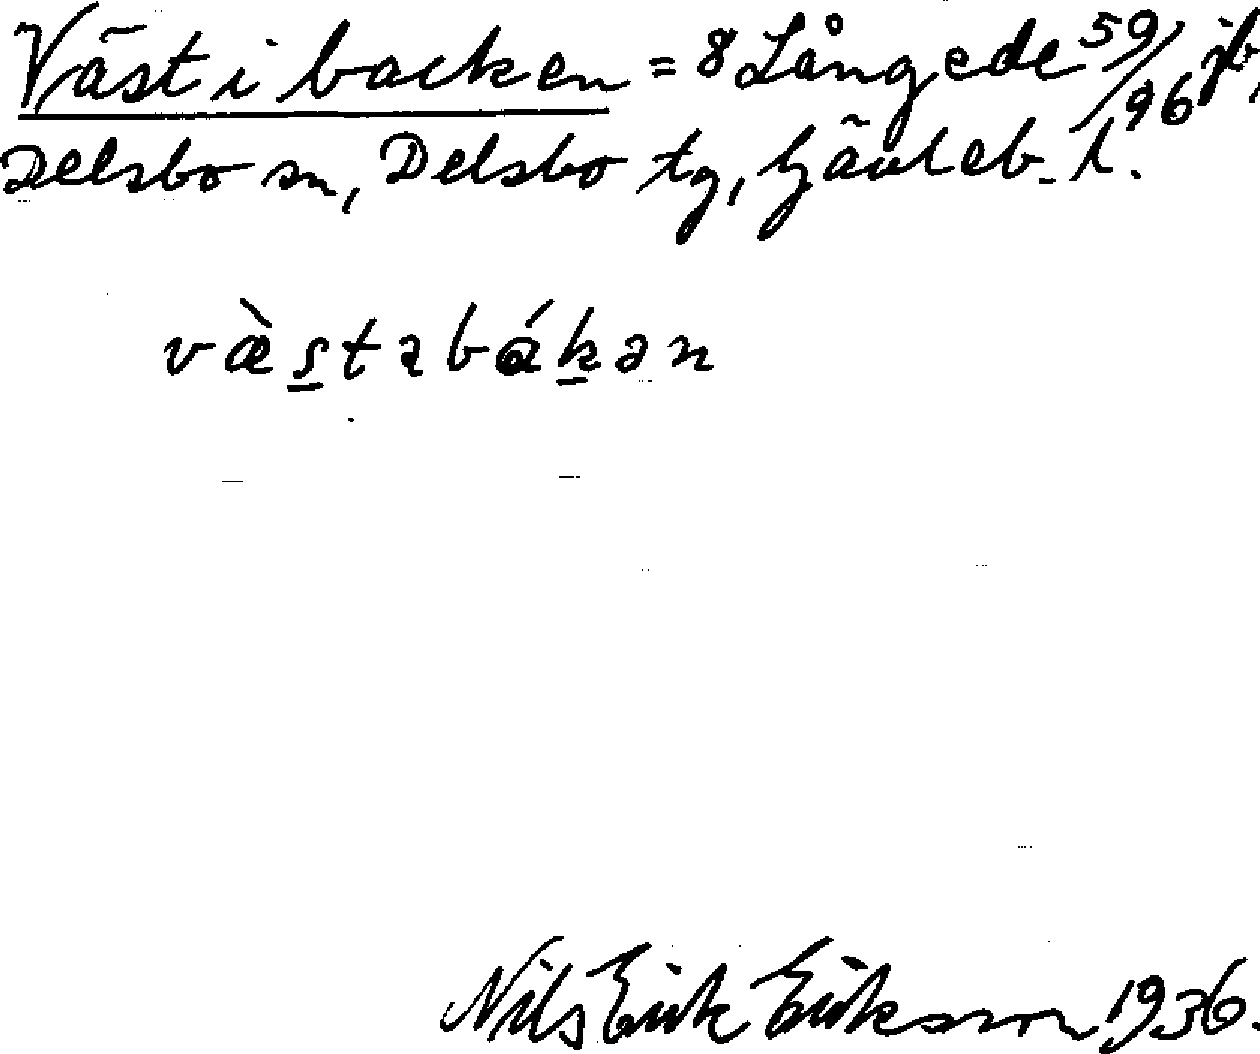 Väst i backen = 8 Långede 59/96 jb,
Delsbo sn, Delsbo tg, Gävleb. l.
væ̀s̠tabák̠ən
Nils Erik Eriksson 1936.